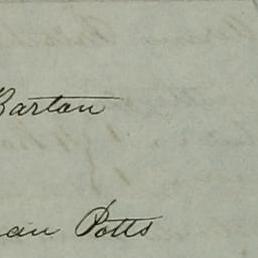 Barton
an Potts